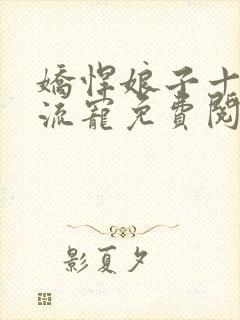 嬌悍娘子十
流寵免費閱
影夏夕